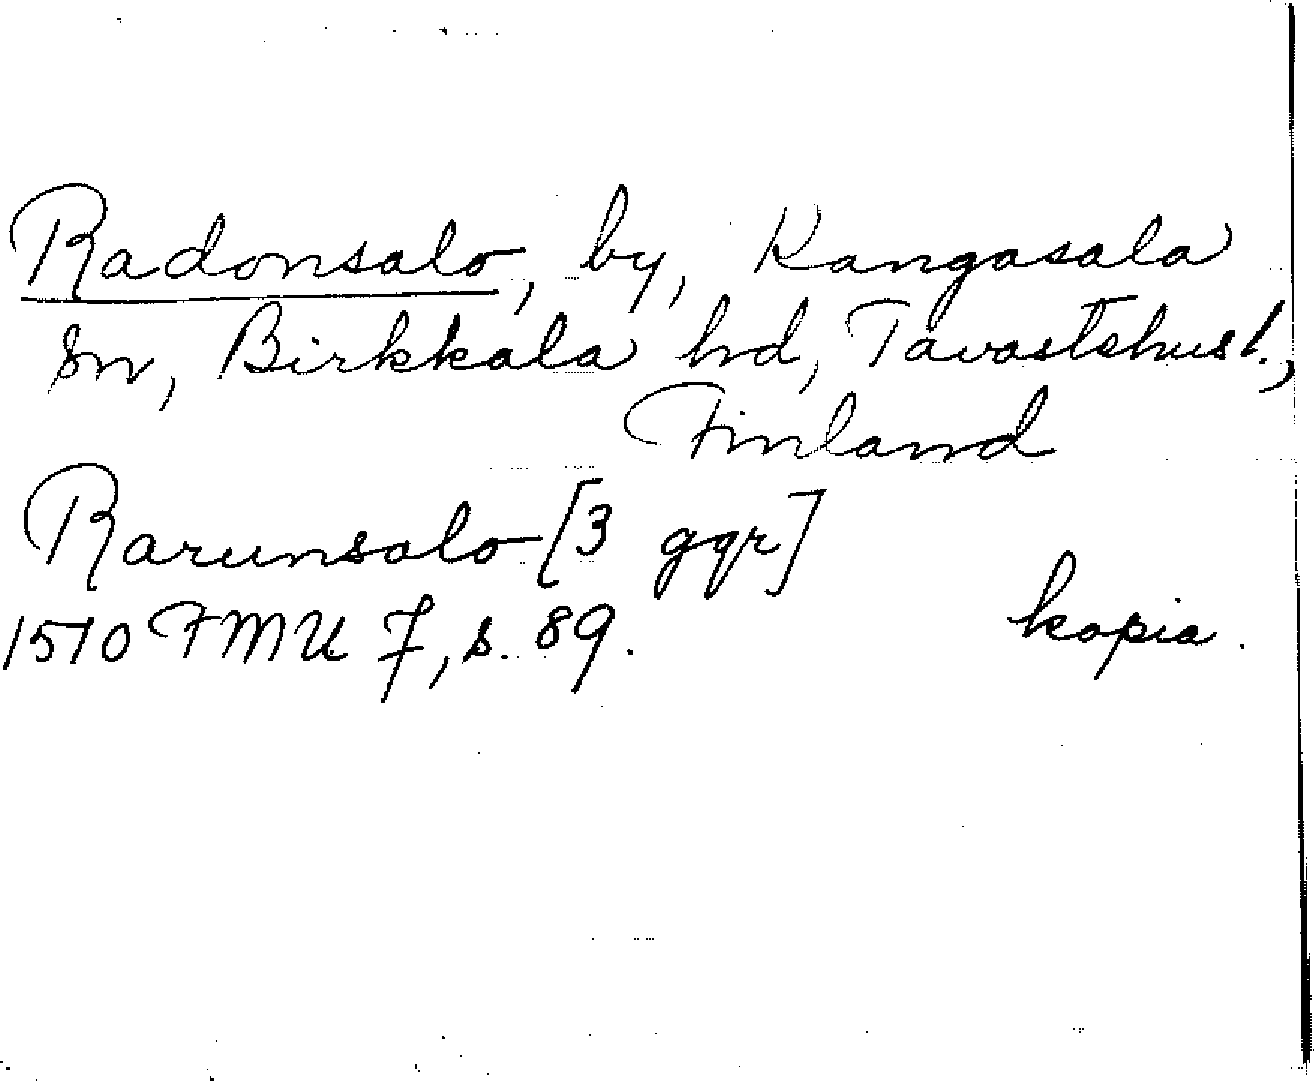 Radonsalo, by, Kangasala
sn, Birkkala hd, Tavastehusl.,
Finland
Rarunsalo [3 ggr]
1510 FMU 7, s. 89. kopia.